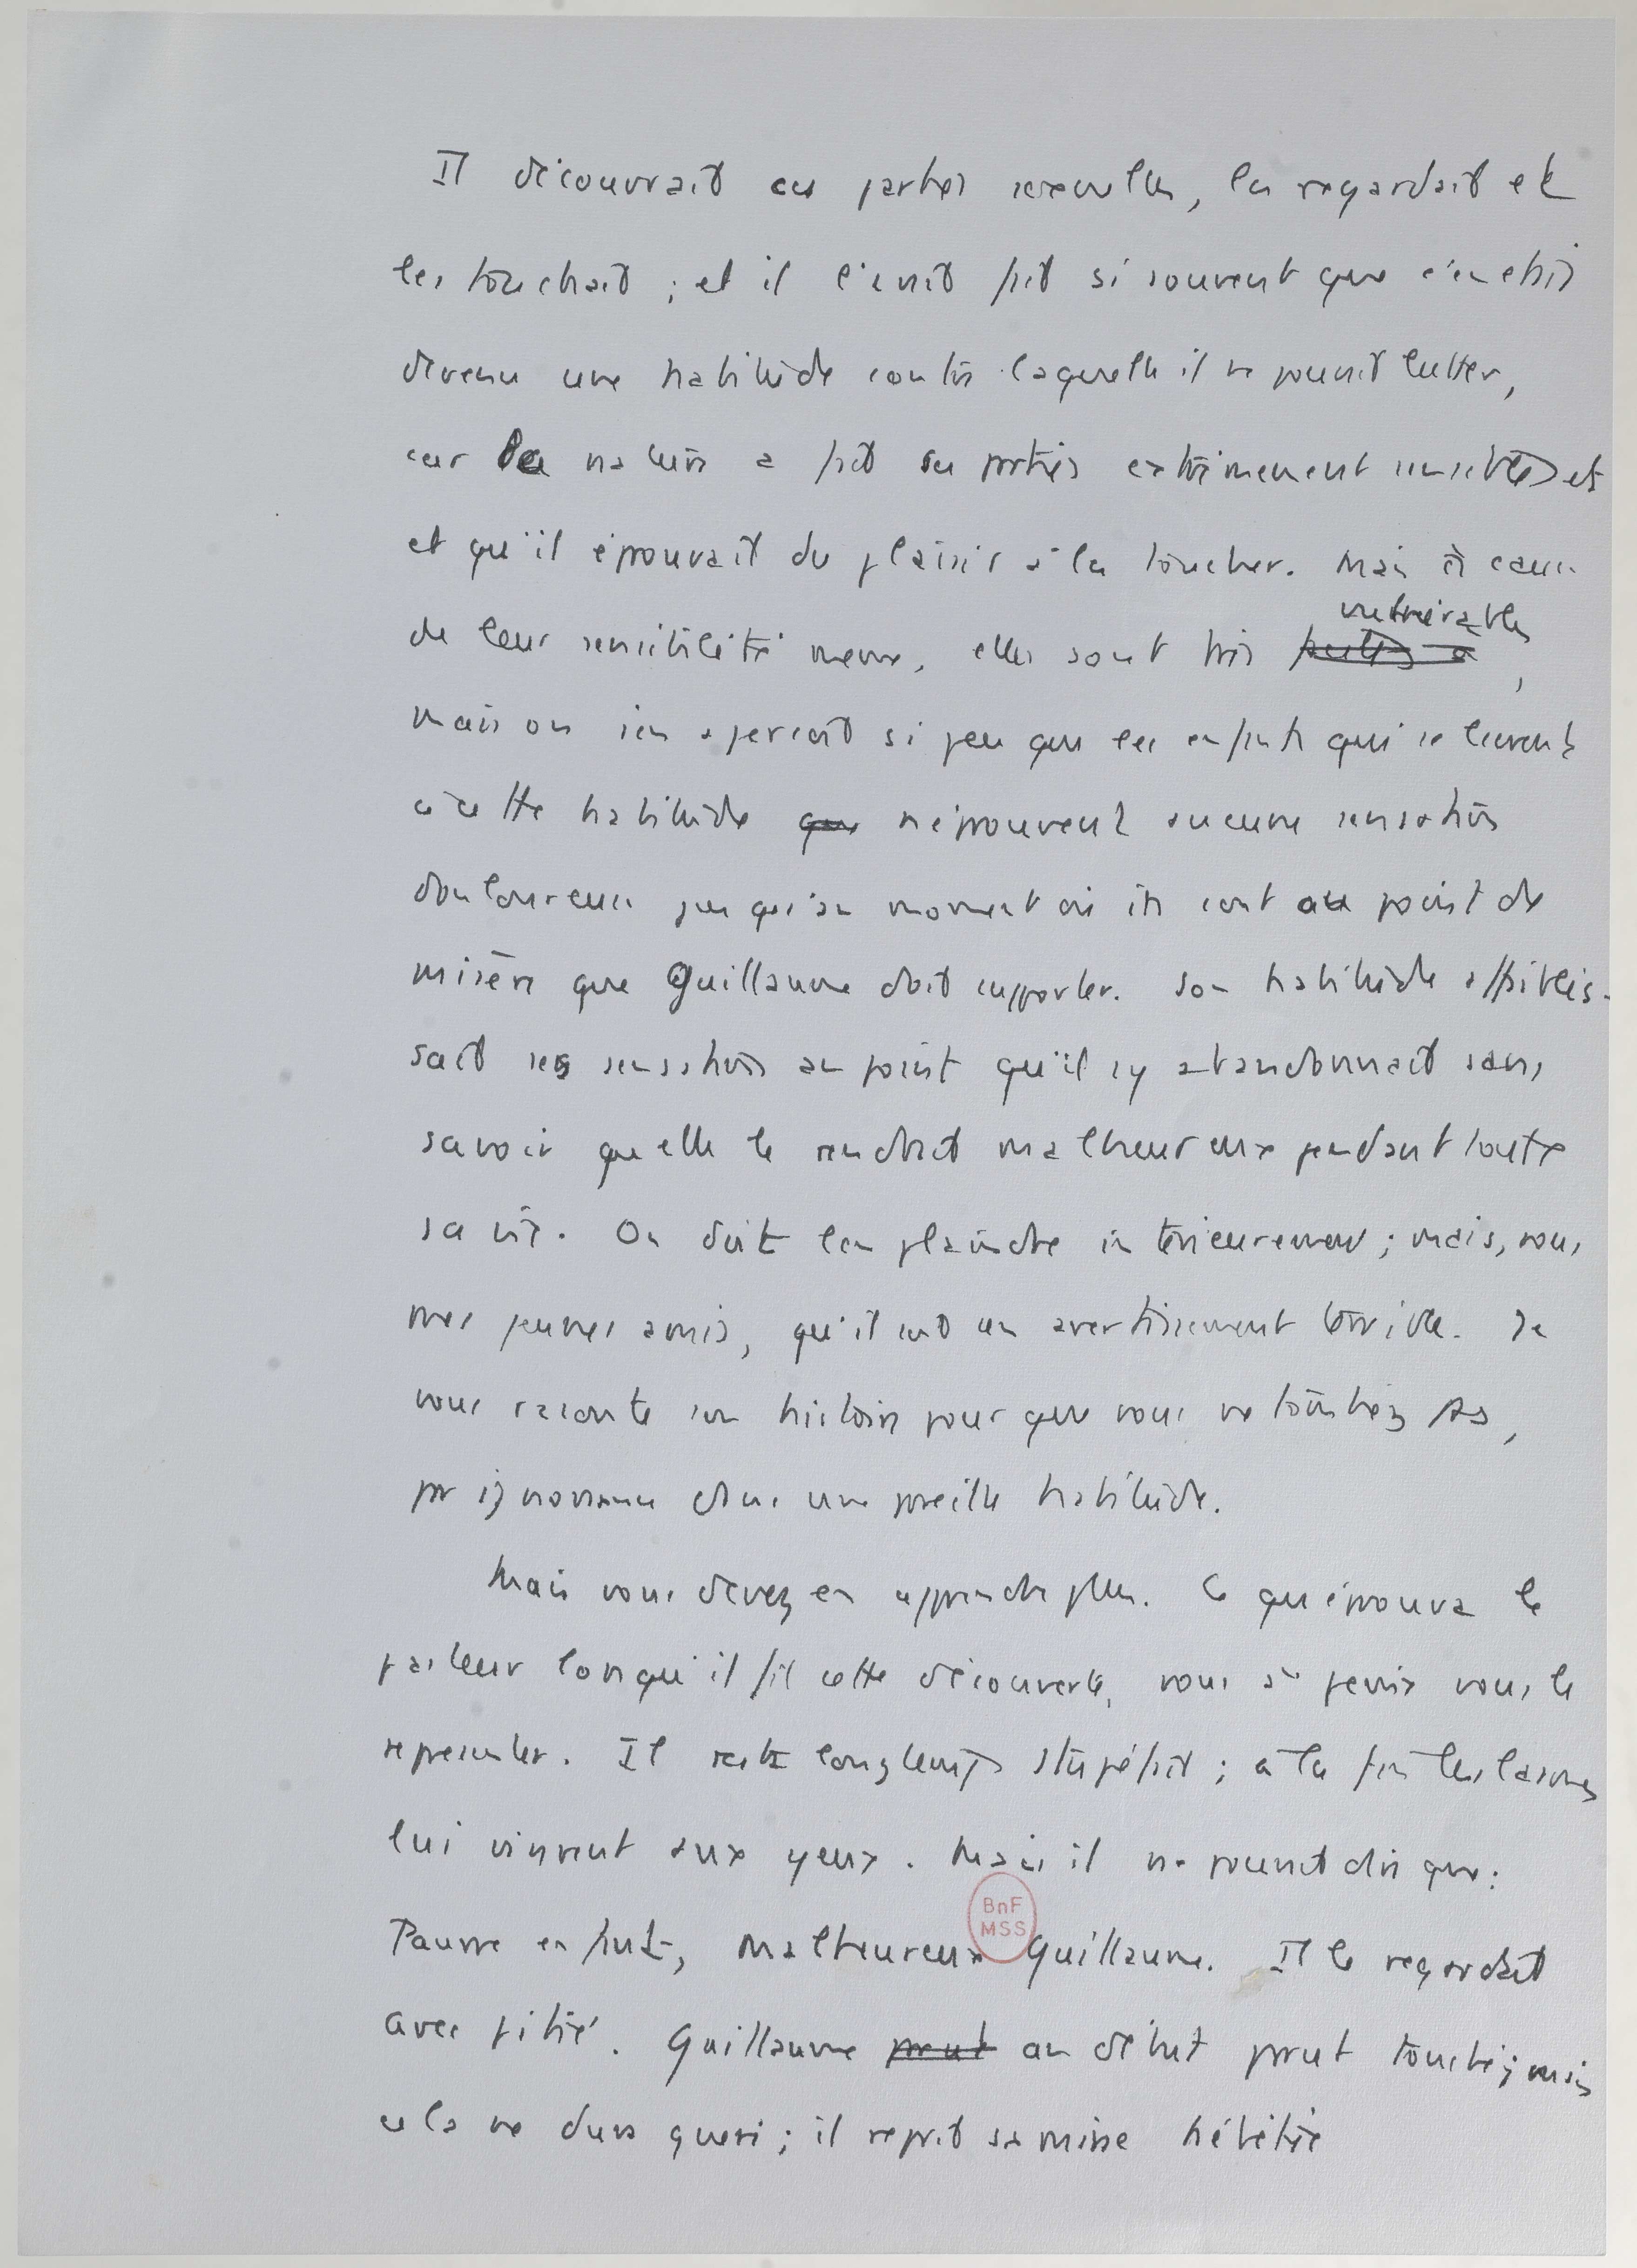 Il découvrait ces parties sexuelles, les regardait et
les touchait ; et il l'avait fait si souvent que c'en était
devenu une habitude contre laquelle il ne pouvait lutter,
car la nature a fait ces parties extrêmement sensibles et
et qu'il éprouvait du plaisir à les toucher. Mais à cause
de leur sensibilité même, elles sont très vulnérables,
mais on s'en aperçoit si peu que les enfants qui se livrent
à cette habitude que n'éprouvent aucune sensation
douloureuse jusqu'au moment où ils sont au point de
misère que Guillaume doit supporter. Son habitude affaiblis-
sait ses sensations au point qu'il s'y abandonnait sans
savoir qu'elle le rendrait malheureux pendant toute
sa vie. On doit l'en plaindre intérieurement ; mais, vous,
mes jeunes amis, qu'il soit un avertissement terrible. Je
vous raconte son histoire pour que vous ne tombiez pas,
par ignorance dans une pareille habitude.
Mais vous devez en apprendre plus. Ce qu'éprouva le
pasteur lorsqu'il fit cette découverte, vous à peine vous le
représenter. Il resta longtemps stupéfait ; à la fin les larmes
lui vinrent aux yeux. Mais il ne pouvait dire que :
Pauvre enfant, malheureux Guillaume. Il le regardait
avec pitié. Guillaume parut au début parut touché ; mais
cela ne dura guère ; il reprit sa mine hébétée
BnF
MSS